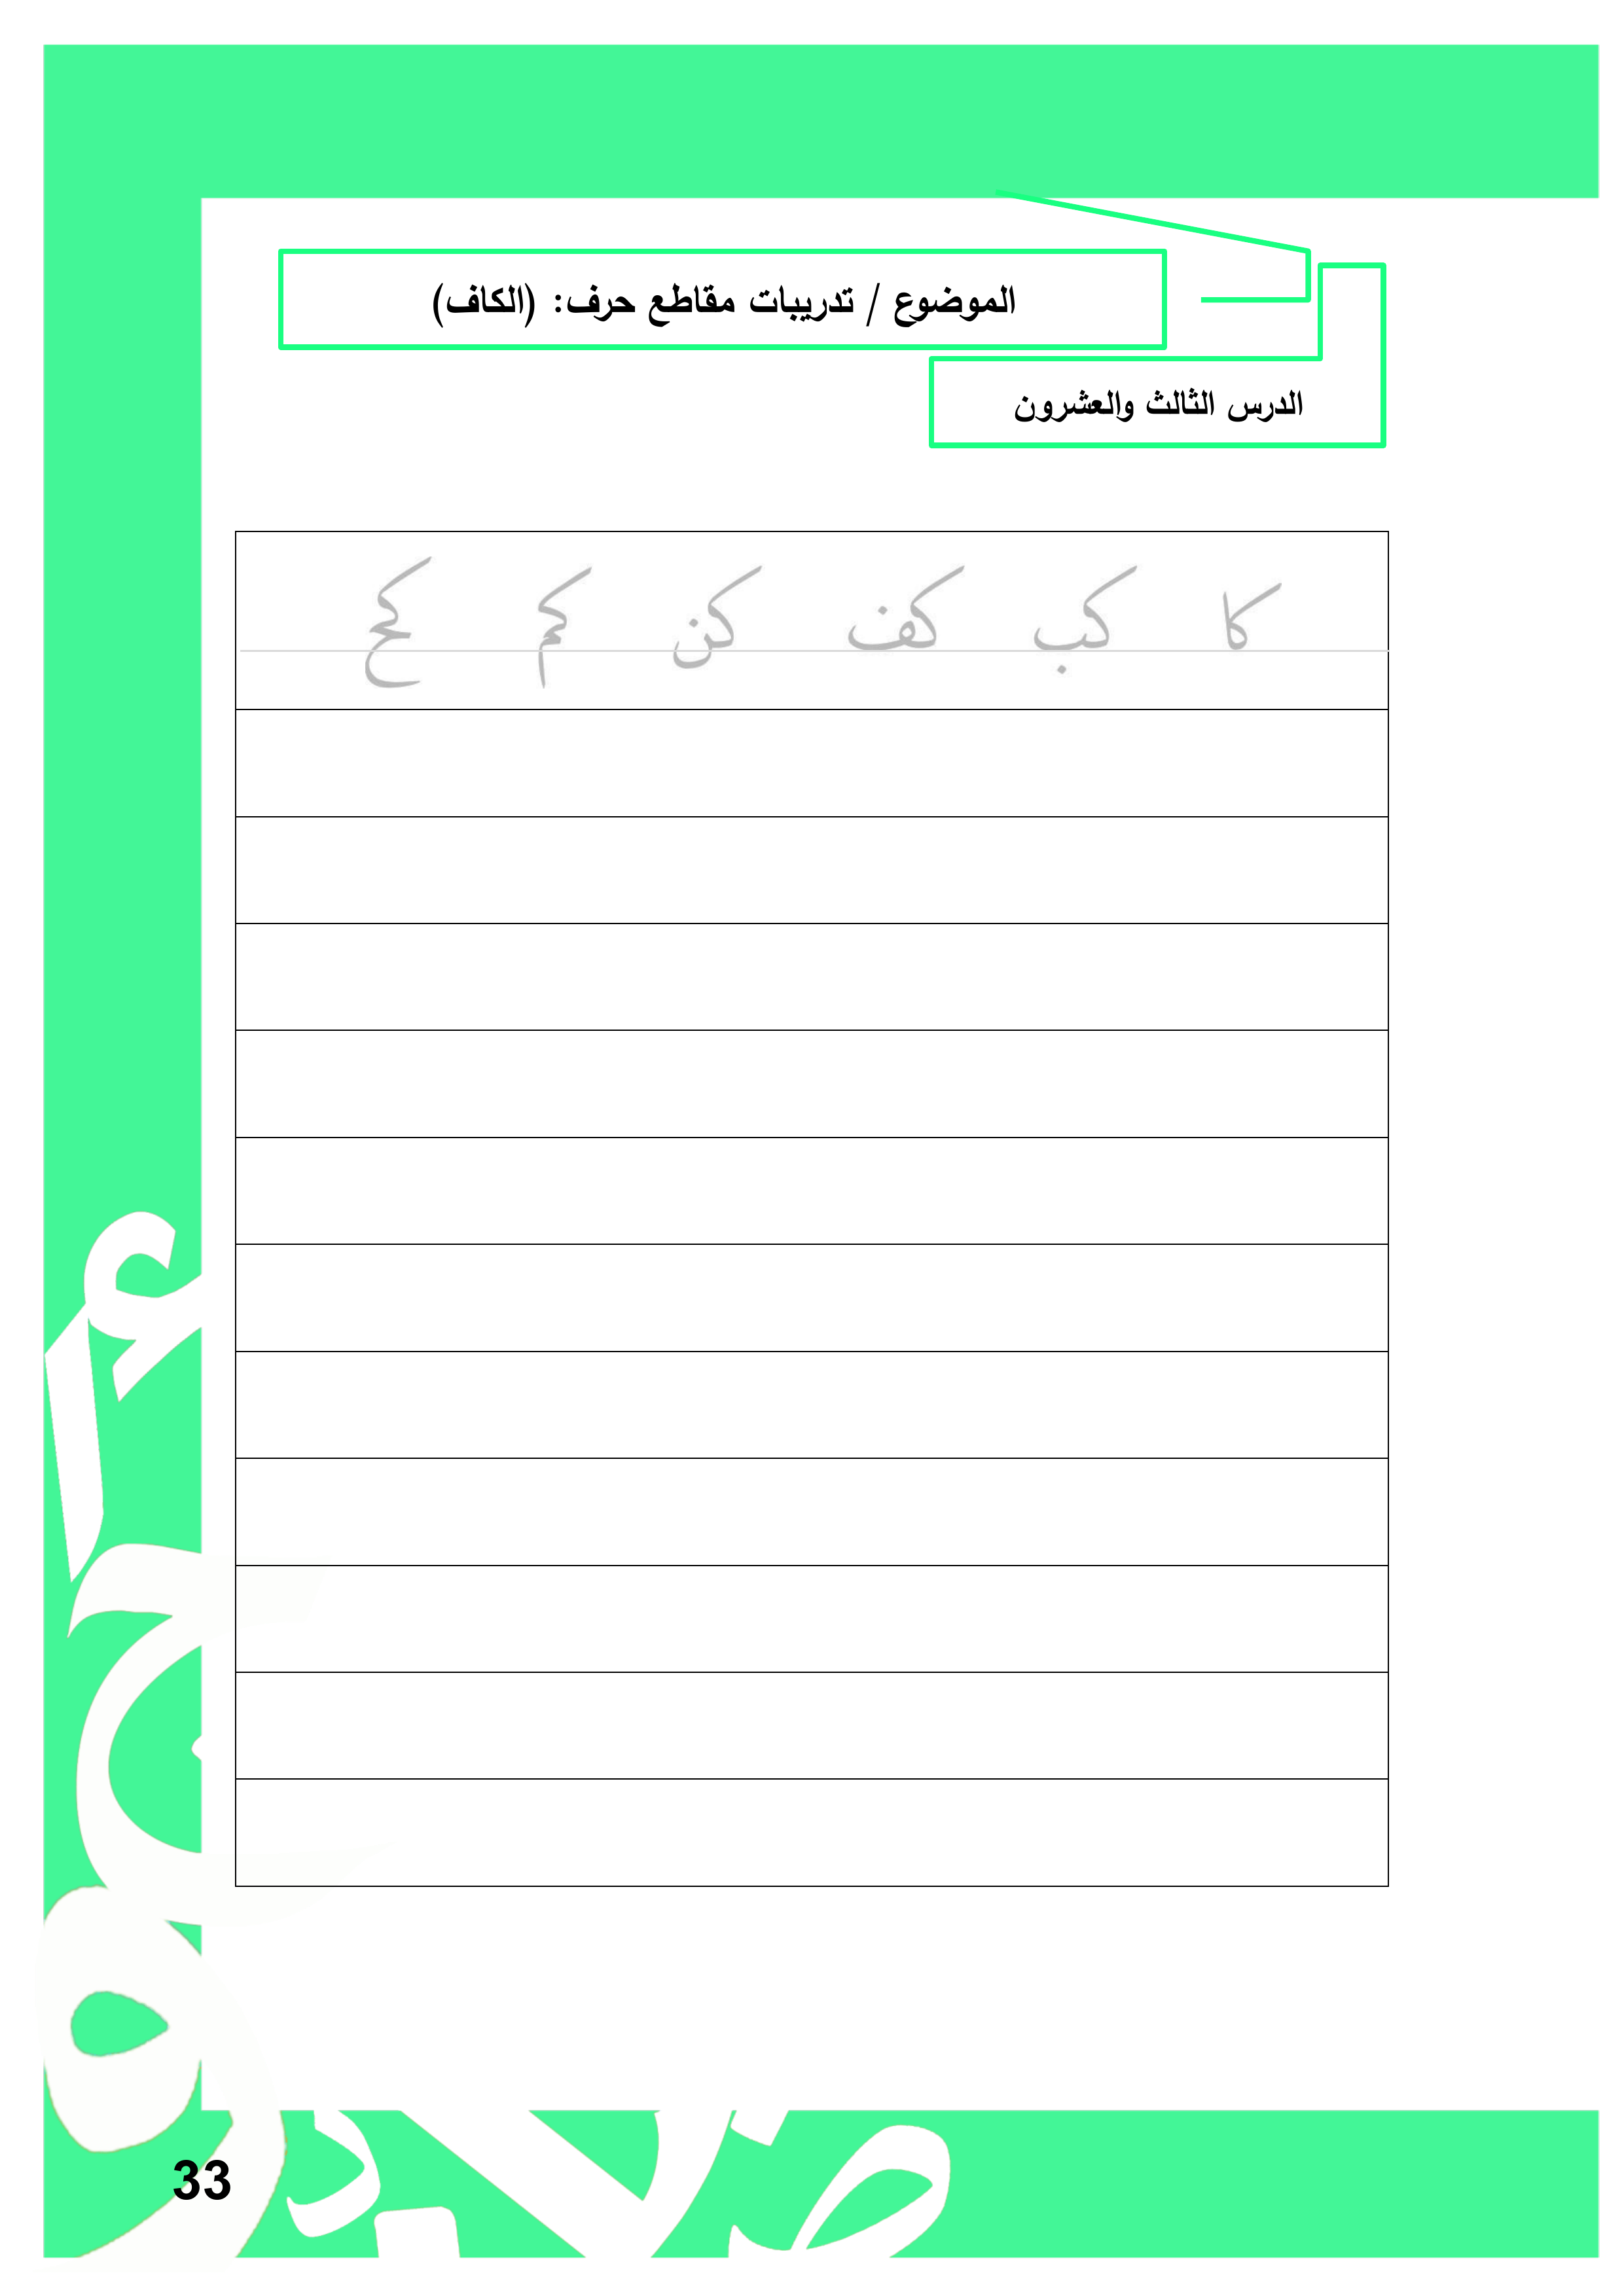 الموضوع / تدريبات مقاطع حرف: (الكاف)
الدرس الثالث والعشرون
كا كب كف كن كم كح
33